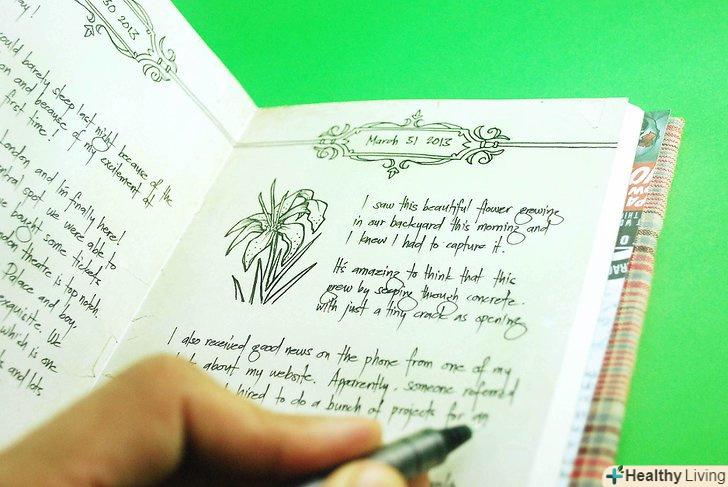 30 2013
ey!
could barely sleep last night because of the
on and because of my excitement of
first time!
London and I'm finally here!
central spot we were able to
bought some tickets
theatre is top notch.
Palace and boy,
exquisite. We
which is one
and lots
March 31 2013
I saw this beautiful flower growing
in our backyard this morning and
I knew I had to capture it.
It's amazing to think that this
grew by seeping through concrete
with just a tiny crack as opening
I also received good news on the phone from one of my
about my website. Apparently, someone referred
hired to do a bunch of projects for an
Healthy Living